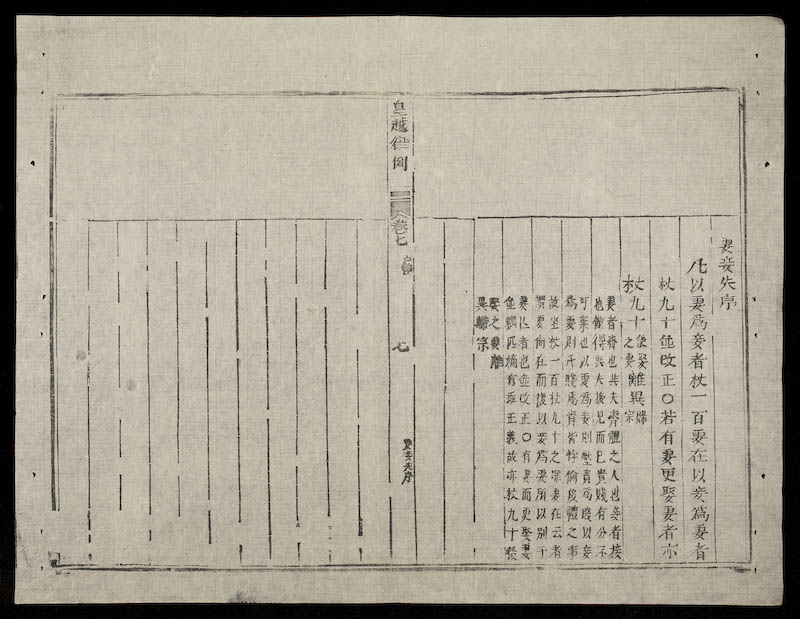 妻妾失序
凡以妻爲妾者杖一百妻在以妾爲妻者
杖九十並改正○若有妻更娶妻者亦
杖九十後娶之妻離異歸宗
妻者齊也與夫齊體之人也妾者接
也僅得與夫接見而已貴賤有分不
可紊也以妻爲妾則壓貴爲賤以妾
爲妻則升賤爲貴皆悖倫毀禮之事
故坐杖一百杖九十之罪妻在云者
謂妻尚在而復以妾爲妻所以別于
妻亡者也並改正○有妻而更娶妻
並耦匹嫡有乖正義故亦杖九十後
娶之妻離
異歸宗
皇越律例
卷七
七
妻妾失序